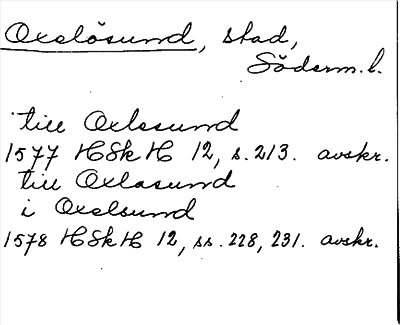 Oxelösund, stad,
Söderm.l.
till Oxlesund
1577 HSkH 12, s. 213. avskr.
till Oxlasund
i Oxelsund
1578 HSkH 12, ss. 228, 231. avskr.